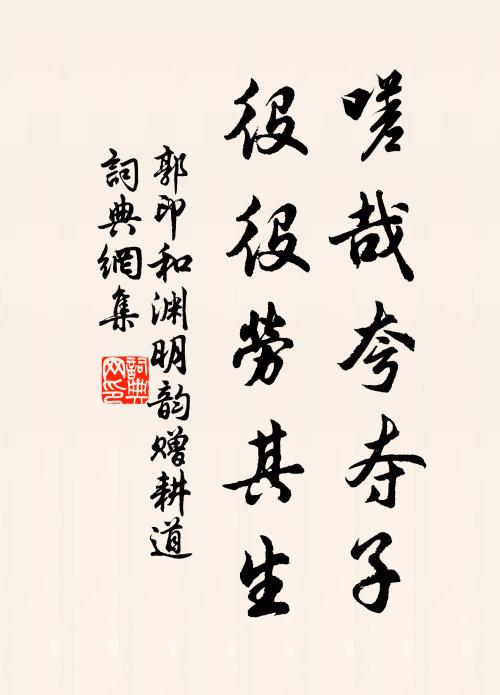 嗟哉夸夺子
役役劳其生
郭印和渊明韵赠耕道
詞典網集
詞典
网印